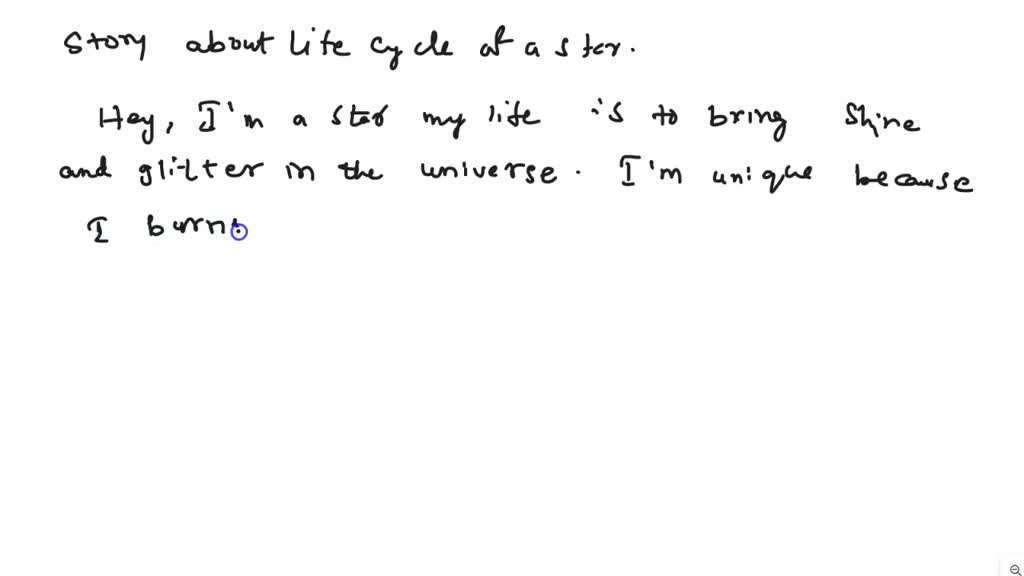 Story about life cycle of a star.
Hey, I'm a star my life is to bring Shine
and glitter in the universe. I'm unique because
I burn